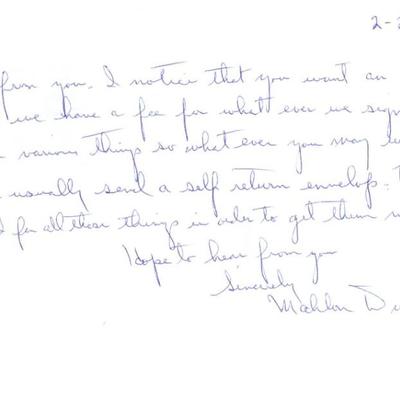 2-2
from you. I notice that you want an
we have a fee for what ever we sign
various things so what ever you may
usually send a self return envelop.
for all those things in order to get them
Hope to hear from you
Sincerely
Mahlon